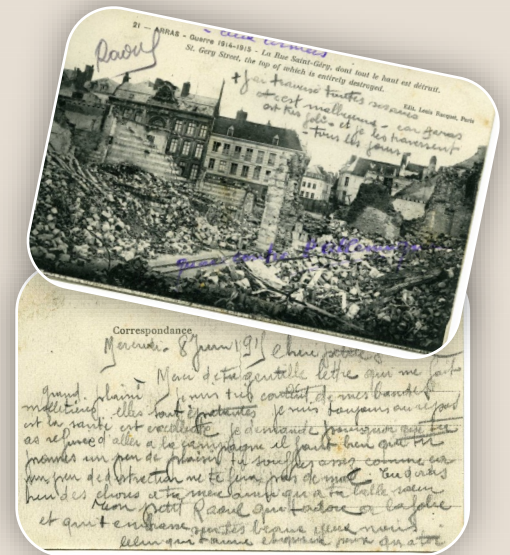 aux armées
21 — ARRAS - Guerre 1914-1915 - La Rue Saint-Géry, dont tout le haut est détruit.
St. Gery Street, the top of which is entirely destroyed.
Edit. Louis Racquet, Paris
Raoul
+ j'ai traversé toutes ses rues
et c'est malheureux - car Arras
est très jolie et je les traversent
tous les jours
contre l'Allemagne
Correspondance
Mercredi 8 Juin 191 chérie petite
Merci de ta gentille lettre qui me fait
grand plaisir je suis très content de mes bandes
molletières elles sont épatantes je suis toujours au repos
et la santé est excellente je demande pourquoi que tu
as refusé d'aller à la campagne il faut bien que tu
prennes un peu de plaisir tu souffres assez comme ça
un peu de distraction ne te fera pas de mal Tu diras
bien des choses à ta mère ainsi qu'à ta belle soeur
Ton petit Raoul qui t'adore à la folie
et qui t'embrasse sur tes beaux yeux noirs
celui qui t'aime et qui